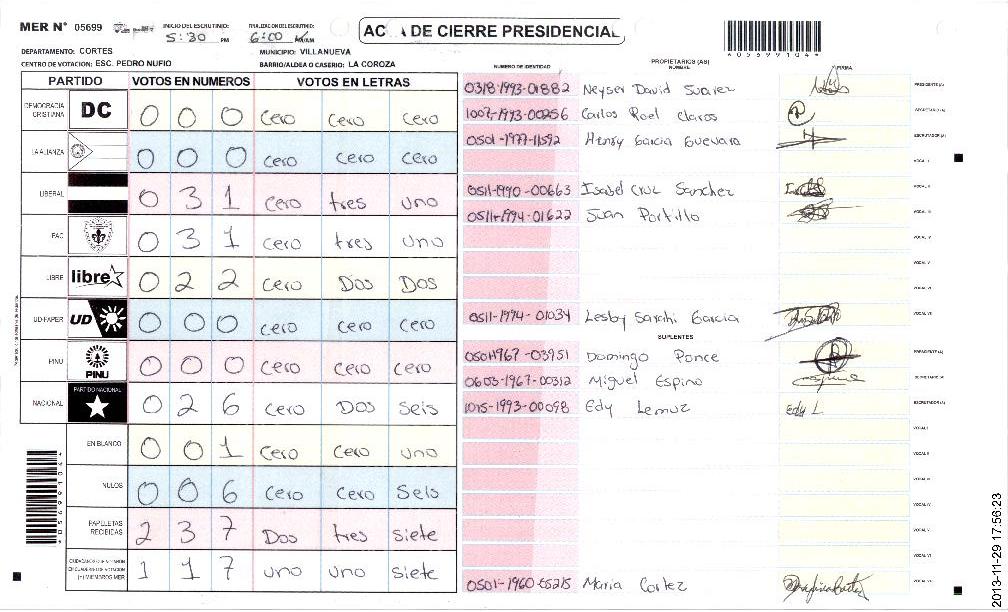 MER N° 05699
INICIO DEL ESCRUTINIO: 5:30 PM
FINALIZACION DEL ESCRUTINIO: 6:00
ACTA DE CIERRE PRESIDENCIAL
DEPARTAMENTO: CORTES
MUNICIPIO: VILLANUEVA
CENTRO DE VOTACION: ESC. PEDRO NUFIO
BARRIO/ALDEA O CASERIO: LA COROZA
PARTIDO VOTOS EN NUMEROS VOTOS EN LETRAS
NUMERO DE IDENTIDAD PROPIETARIOS (AS) NOMBRE FIRMA
DEMOCRACIA CRISTIANA DC 0 0 0 Cero Cero Cero
LA ALIANZA 0 0 0 Cero Cero Cero
LIBERAL 0 3 1 Cero tres uno
PAC 0 3 1 Cero tres uno
LIBRE libre 0 2 2 Cero Dos Dos
UD-FAPER UD 0 0 0 Cero Cero Cero
PINU PINU 0 0 0 Cero Cero Cero
NACIONAL PARTIDO NACIONAL 0 2 6 Cero Dos Seis
EN BLANCO 0 0 1 Cero Cero uno
NULOS 0 0 6 Cero Cero Seis
PAPELETAS RECIBIDAS 2 3 7 Dos tres siete
CIUDADANOS QUE VOTARON EN CUADERNO DE VOTACION (+) MIEMBROS MER 1 1 7 uno uno siete
0318-1993-01882 Neyser David Suarez PRESIDENTE (A)
1007-1993-00256 Carlos Roel Claros SECRETARIO (A)
0501-1977-11592 Henry Garcia Guevara ESCRUTADOR (A)
VOCAL I
0511-1990-00663 Isabel Cruz Sanchez VOCAL II
0511-1994-01622 Juan Portillo VOCAL III
VOCAL IV
VOCAL V
VOCAL VI
0511-1994-01034 Lesby Sarahi Garcia VOCAL VII
SUPLENTES
0501-1967-03951 Domingo Ponce PRESIDENTE (A)
0603-1967-00312 Miguel Espino SECRETARIO (A)
1015-1993-00098 Edy Lemuz Edy L. ESCRUTADOR (A)
VOCAL I
VOCAL II
VOCAL III
VOCAL IV
VOCAL V
VOCAL VI
Maria Cortez VOCAL VII
056991044
2013-11-29 17:56:23